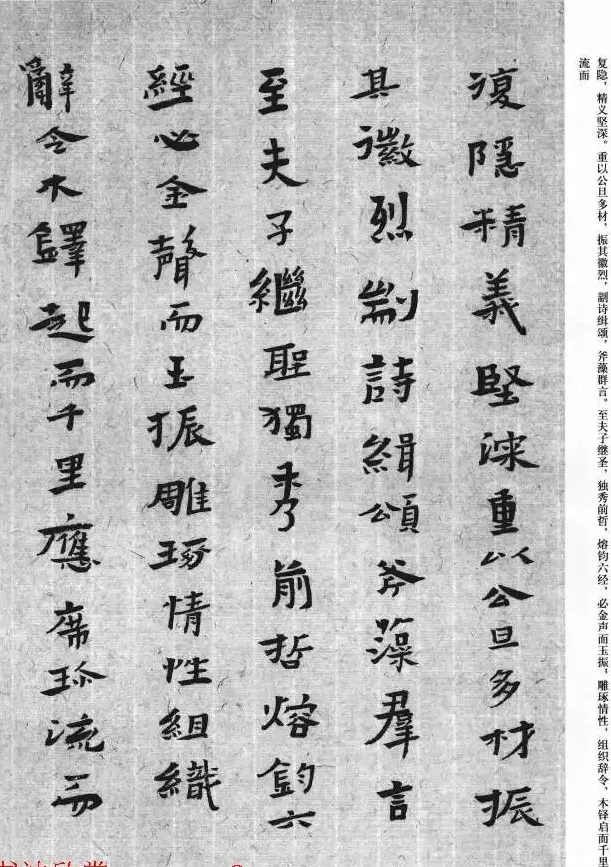 复隐，精义坚深。重以公旦多材，振其徽烈，剬诗缉颂，斧藻群言。至夫子继圣，独秀前哲，熔钧六经，必金声而玉振；雕琢情性，组织辞令，木铎启而千里
流而
復隱精義堅深重以公旦多材振
其徽烈剬詩緝頌斧藻羣言
至夫子繼聖獨秀前哲熔鈞六
經必金聲而玉振雕琢情性組織
辭令木鐸起而千里應席珍流而